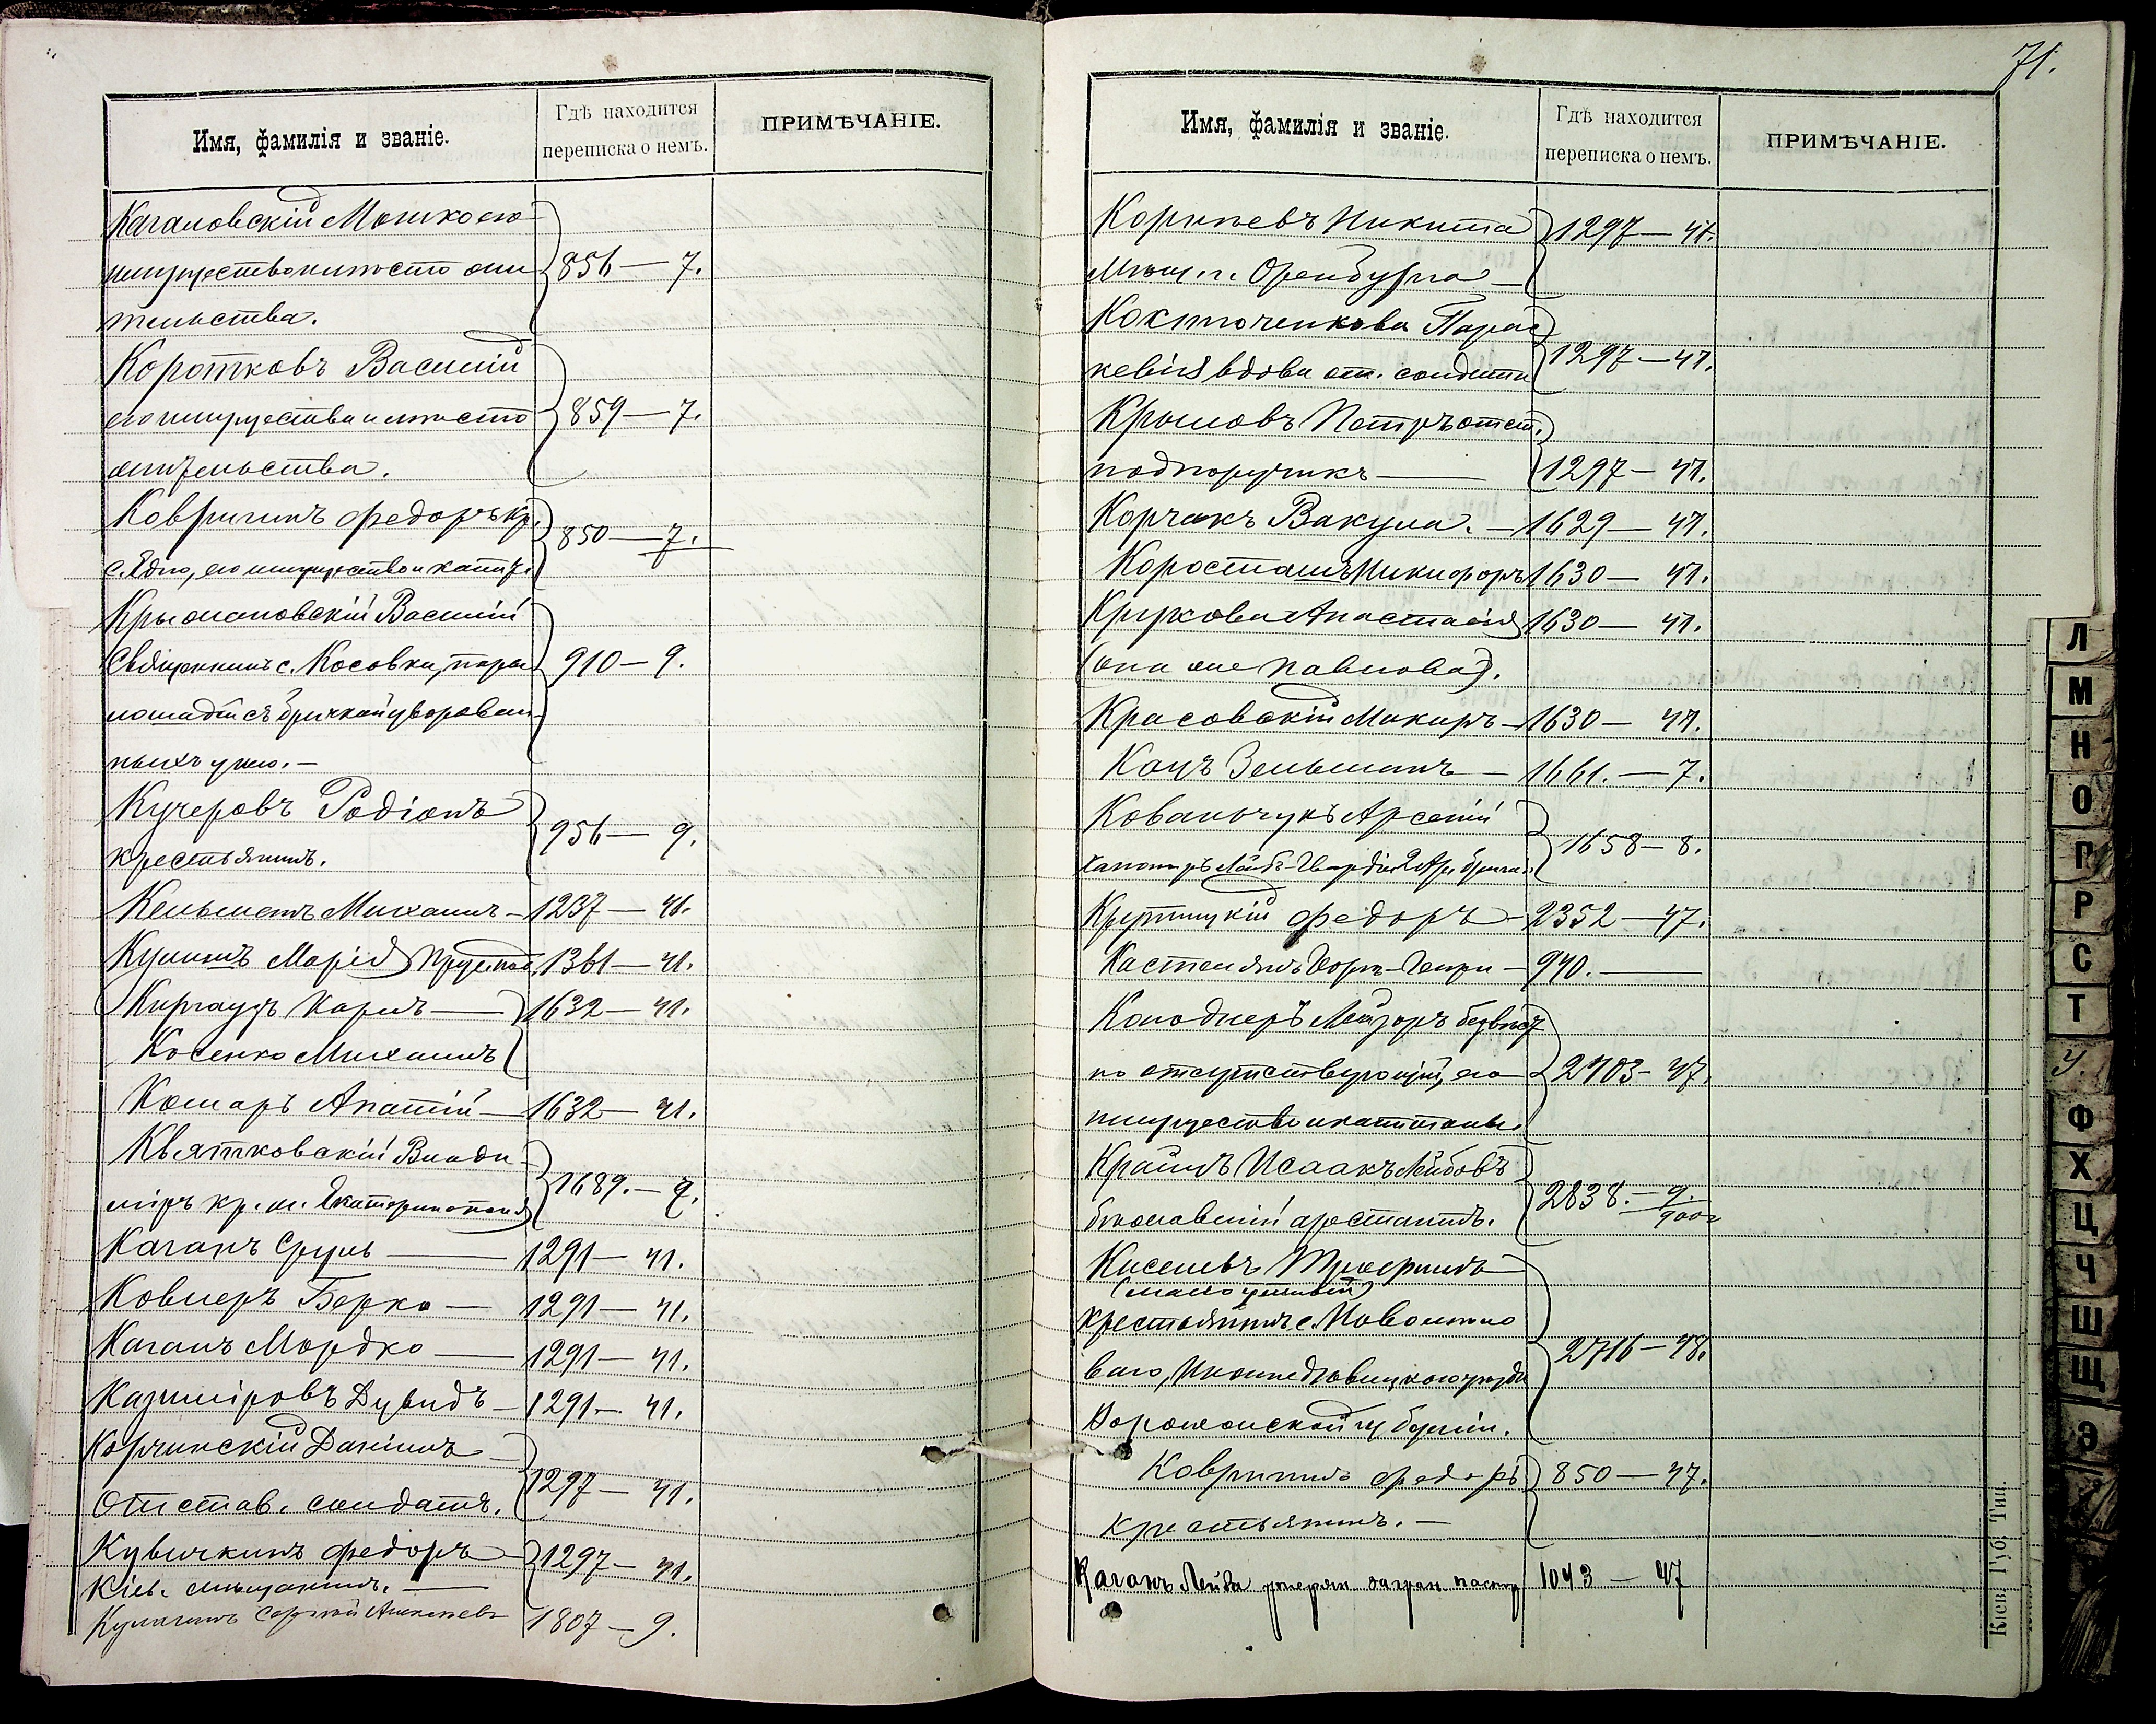 71.
Имя, фамилія и званіе.
Гдѣ находится
переписка о немъ.
ПРИМѢЧАНІЕ.
Кагановскій Мошко его
имущество и мѣсто жи
тельства.
856 — 7.
Коротковъ Василій
его имущество и мѣсто
жительства.
859 — 7.
Ковригинъ Федоръ кр.
его имущество и капит.
850 — 7.
Крыжановскій Василій
Священникъ с. Косовки, пара
лошадей съ бричкой уворован
ныхъ у него. —
910 — 9.
Кучеровъ Родіонъ
крестьянинъ.
956 — 9.
Кельманъ Михаилъ — 1237 — 41.
Кулишъ Марія 1361 — 41.
Киргаузъ Карлъ — 1632 — 41.
Косенко Михаилъ
Комаръ Ипатій — 1632 — 41.
Квятковскій Влади
міръ кр. м. Екатеринополя
1689. — 7.
Каганъ Сруль — 1291 — 41.
Ковнеръ Берко — 1291 — 41.
Каганъ Мордко — 1291 — 41.
Казиміровъ Дувидъ — 1291 — 41.
Корчинскій Даніилъ
Отстав. солдатъ.
1297 — 41.
Кувичкинъ Федоръ
Кіев. мѣщанинъ. —
1297 — 41.
Кулагинъ Сергѣй Алексѣев 1807 — 9.
Имя, фамилія и званіе.
Гдѣ находится
переписка о немъ.
ПРИМѢЧАНІЕ.
Корнѣевъ Никита
Мѣщ. г. Оренбурга —
1297 — 41.
Костюченкова Парас
кевія вдова от. солдата
1297 — 41.
Крыловъ Петръ отст.
подпоручикъ —
1297 — 41.
Корчакъ Вакула. — 1629 — 41.
Коросташъ Никифоръ 1630 — 41.
Крукова Анастасія 1630 — 41.
(она же Павлова).
Красовскій Макаръ — 1630 — 41.
Кацъ Зельманъ — 1661. — 7.
Ковальчукъ Арсеній
Лейбъ-Гвардіи 2 Ар. бригад.
1658 — 8.
Крупницкій Федоръ — 2352 — 47.
Кастелянъ Жоржъ-Генри — 940. —
Колоднеръ Лейзоръ безвѣст
но отсутствующій, его
имущество и капиталы.
2703 — 47.
Крайзъ Исаакъ Лейбовъ
бѣжавшій арестантъ.
2838. — 9.
Киселевъ
(малолѣтній)
крестьянинъ с.
уѣзда
Воронежской губерніи.
2716 — 48.
Ковригинъ Федоръ 850 — 47.
крестьянинъ. —
Каганъ Лейба утерян. загран. паспор 1043 — 47
Кіев. Губ. Тип.
Л
М
Н
О
П
Р
С
Т
У.
Ф
Х
Ц
Ч
Ш
Щ
Э